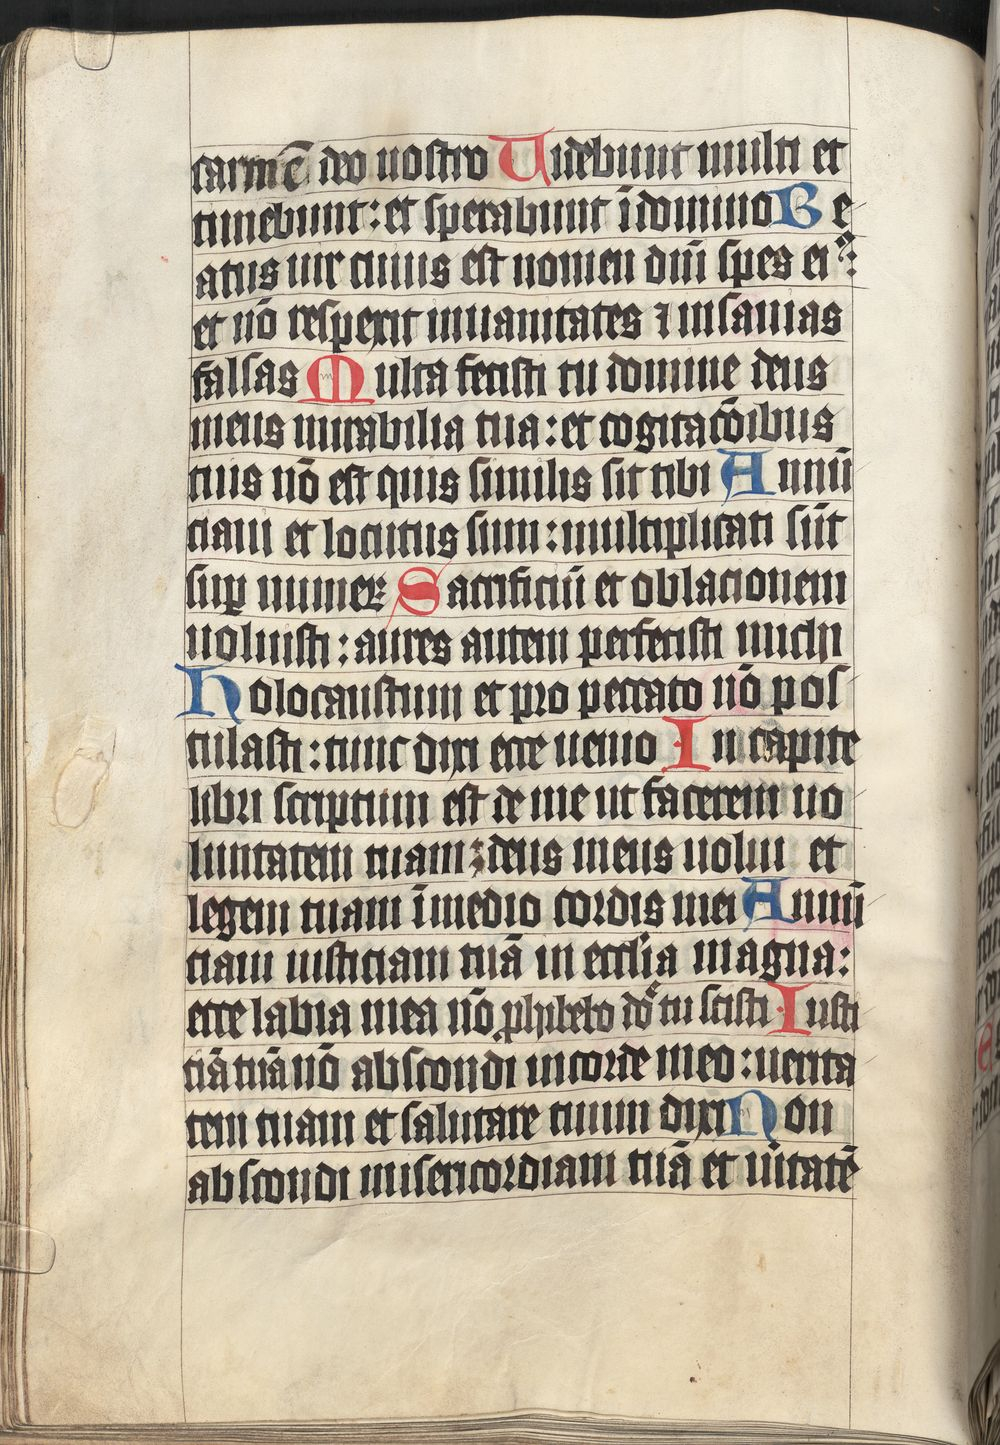 carmē deo nostro Uidebunt multi et
timebunt: et sperabunt ī domino Be
atus uir cuius est nomen dn̄i spes eiꝰ:
et nō respexit in uanitates ⁊ insanias
falsas Multa fecisti tu domine deus
meus mirabilia tua: et cogitacōibus
tuis nō est quis similis sit tibi Annū
ciaui et locutus sum: multiplicati sūt
suꝑ numeꝝ Sacrificiū et oblacionem
noluisti: aures autem perfecisti michi
Holocaustum et pro peccato nō pos
tulasti: tunc dixi ecce uenio In capite
libri scriptum est de me ut facerem uo
luntatem tuam: deus meus uolui et
legem tuam ī medio cordis mei Annū
ciaui iusticiam tuā in ecclīa magna:
ecce labia mea nō ꝓhibebo dōe tu scisti Iusti
ciā tuā nō abscondi in corde meo: uerita
tem tuam et salutare tuum dixi Non
abscondi misericordiam tuā et ūitatē